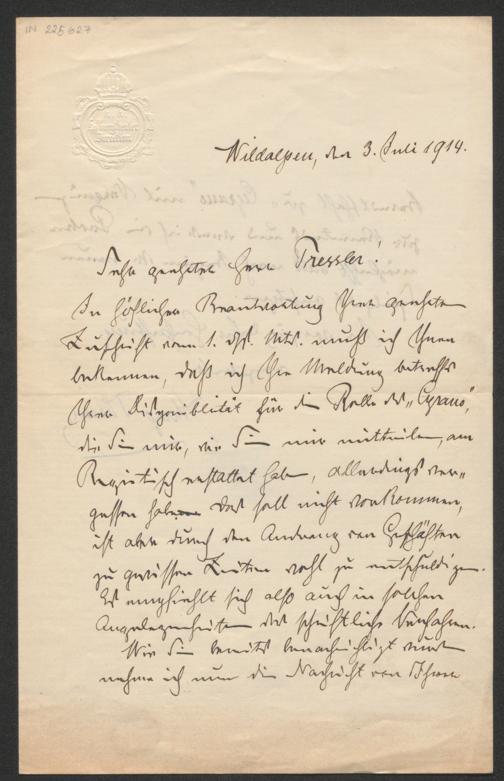 IN 225627
Wildalpen, den 3. Juli 1914.
Sehr geehrter Herr Tressler!
In höflicher Beantwortung Ihrer geehrten
Zuschrift vom 1. dſs. Mts. muß ich Ihnen
bekennen, daß ich Ihre Meldung betreffs
Ihrer Disponiblität für die Rolle des „Cyrano",
die Sie mir, wie Sie mir mitteilen, am
Regietisch erstattet haben, allerdings ver„
gessen habe. Das soll nicht vorkommen,
ist aber durch den Andrang von Geschäften
zu gewissen Zeiten wohl zu entschuldigen.
Es empfiehlt sich also auch in solchen
Angelegenheiten das schriftliche Verfahren.
Wie Sie bereits benachrichtigt wurden
nehme ich nun die Nachricht von Ihrer